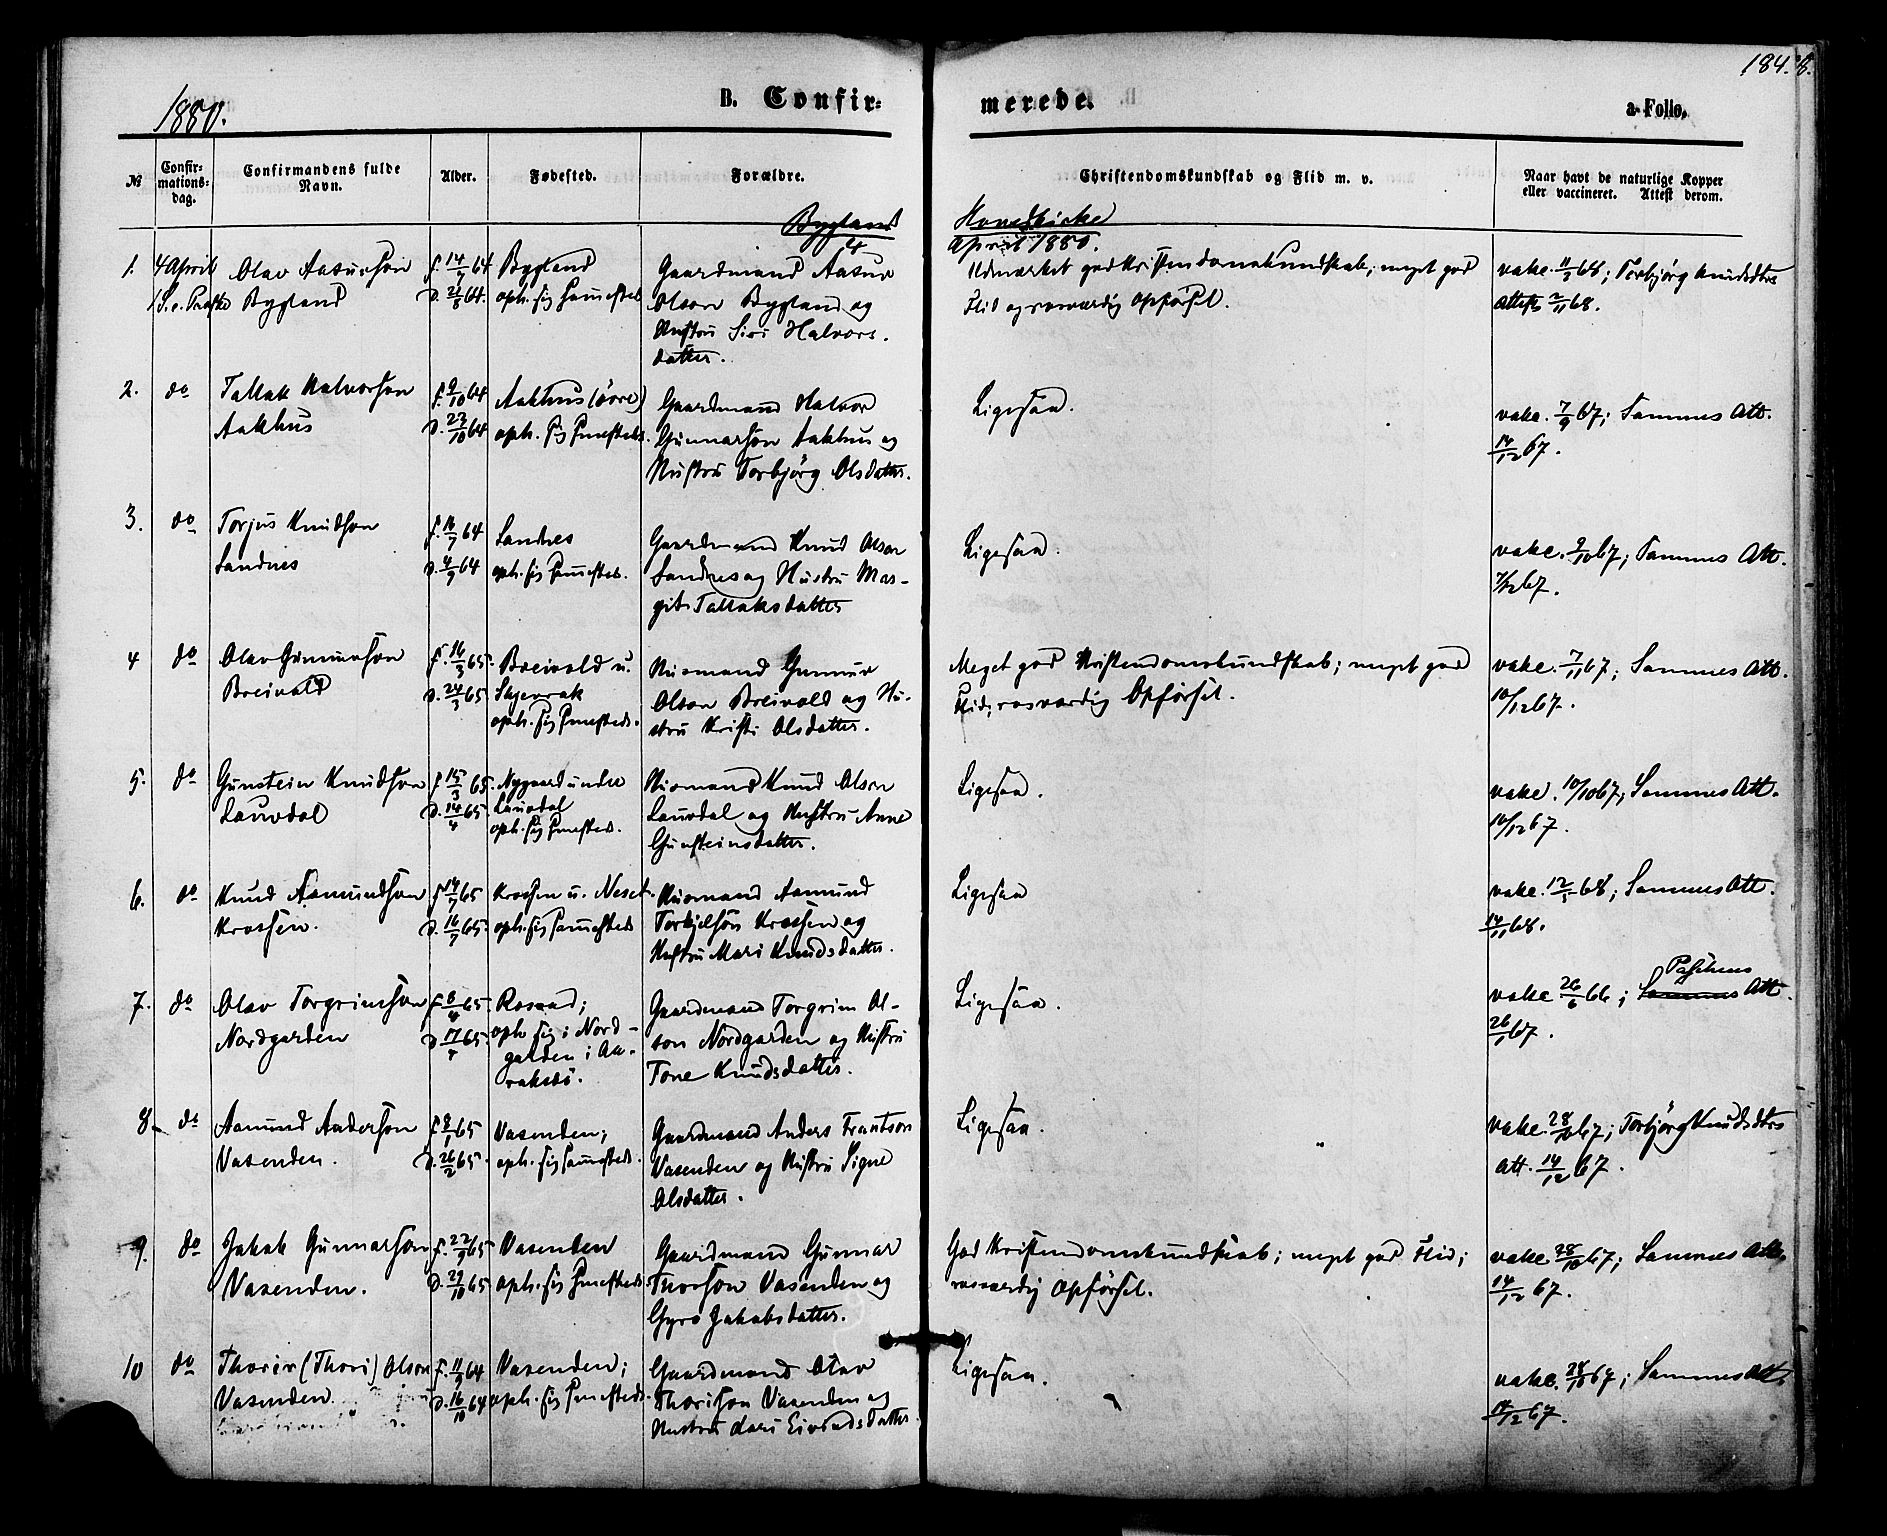 184.
8.
1880.
B. Confirmerede.
a Folio.
№
Confirmations-dag.
Confirmandens fulde Navn.
Alder.
Fødested.
Forældre.
Christendomskundskab og Flid m. v.
Naar havt de naturlige Kopper eller vaccineret. Attest derom.
Bygland Hovedkirke
4 April 1880.
1. 4 April
1 S. e. Paaske
Olav Aasulfson
Bygland
f. 14/7 64
d. 21/8 64.
Bygland
oph. sig sammesteds
Gaardmand Aasulf
Olson Bygland og
Hustru Siri Halvors-
datter.
Udmærket god Kristendomskundskab; meget god
Flid og rosværdig Opførsel.
vakc. 11/9 68; Torbjørg Knudsdtrs
Attest 2/11 68.
2. do
Tallak Halvorson
Aakhus
f. 9/10 64
d. 23/10 64
Aakhus (øvre)
oph. sig sammesteds.
Gaardmand Halvor
Gunnarson Aakhus og
Hustru Torbjörg Olsdatter.
Ligesaa.
vakc. 7/9 67; Sammes Att.
14/12 67.
3. do
Torjus Knudson
Sandnes
f. 16/7 64
d. 4/9 64
Sandnes
oph. sig sammesteds.
Gaardmand Knud Olson
Sandnes og Hustru Mar-
git Tallaksdatter
Ligesaa.
vakc. 9/10 67; Sammes Att.
7/12 67.
4 do
Olav Gunnarson
Breivold
f. 16/3 65.
d. 24/3 65
Breivold u.
Skjevrak
oph. sig sammesteds.
Husmand Gunnar
Olson Breivold og Hu-
stru Kristi Olsdatter.
Meget god Kristendomskundskab; meget god
Flid; rosværdig Opførsel.
vakc. 7/11 67; Sammes Att.
10/12 67.
5. do
Gunstein Knudson
Lauvdal
f. 15/3 65.
d. 14/4 65.
Nygaard undre
Lauvdal
oph. sig sammesteds.
Husmand Knud Olson
Lauvdal og Hustru Anne
Gunsteinsdatter.
Ligesaa.
vakc. 10/10 67; Sammes Att.
10/12 67.
6. do
Knud Aamundson
Krossen.
f. 14/7 65
d. 16/7 65.
Krossen u. Neset.
oph. sig sammesteds
Husmand Aamund
Torkjelson Krossen og
Hustru Mari Knudsdatter.
Ligesaa
vakc. 12/5 68; Sammes Att.
14/11 68.
7. do
Olav Torgrimson
Nordgarden
f. 8/4 65.
d. 17/4 65.
Rosaad;
oph sig i Nord-
garden i Aa-
raksbö.
Gaardmand Torgrim Ol-
son Nordgarden og Hustru
Tone Knudsdatter.
Ligesaa.
vakc 26/6 66; Sammes Att.
26/1 67.
8 do
Aamund Anderson
Vasenden.
f. 8/1 65
d. 26/2 65.
Vasenden;
oph. sig sammesteds.
Gaardmand Anders Frantson
Vasenden og Hustru Signe
Olsdatter.
Ligesaa.
vakc. 28/10 67; Torbjørg Knudsdtrs
Att. 14/12 67.
9. do
Jakob Gunnarson
Vasenden.
f. 22/9 65
d. 29/10 65
Vasenden
oph. sig sammesteds
Gaardmand Gunnar
Thorson Vasenden og
Gyro Jakobsdatter.
God Kristendomskundskab; meget god Flid;
rosværdig Opførsel.
vakc 28/10 67; Sammes Att.
14/12 67.
10 do
Thorer (Thori) Olson
Vasenden
f. 11/9 64
d. 16/10 64
Vasenden;
oph. sig sammesteds.
Gaardmand Olav
Thorison Vasenden og
Hustru Kari Eivindsdatter.
Ligesaa.
vakc. 28/10 67; Sammes Att.
14/12 67.